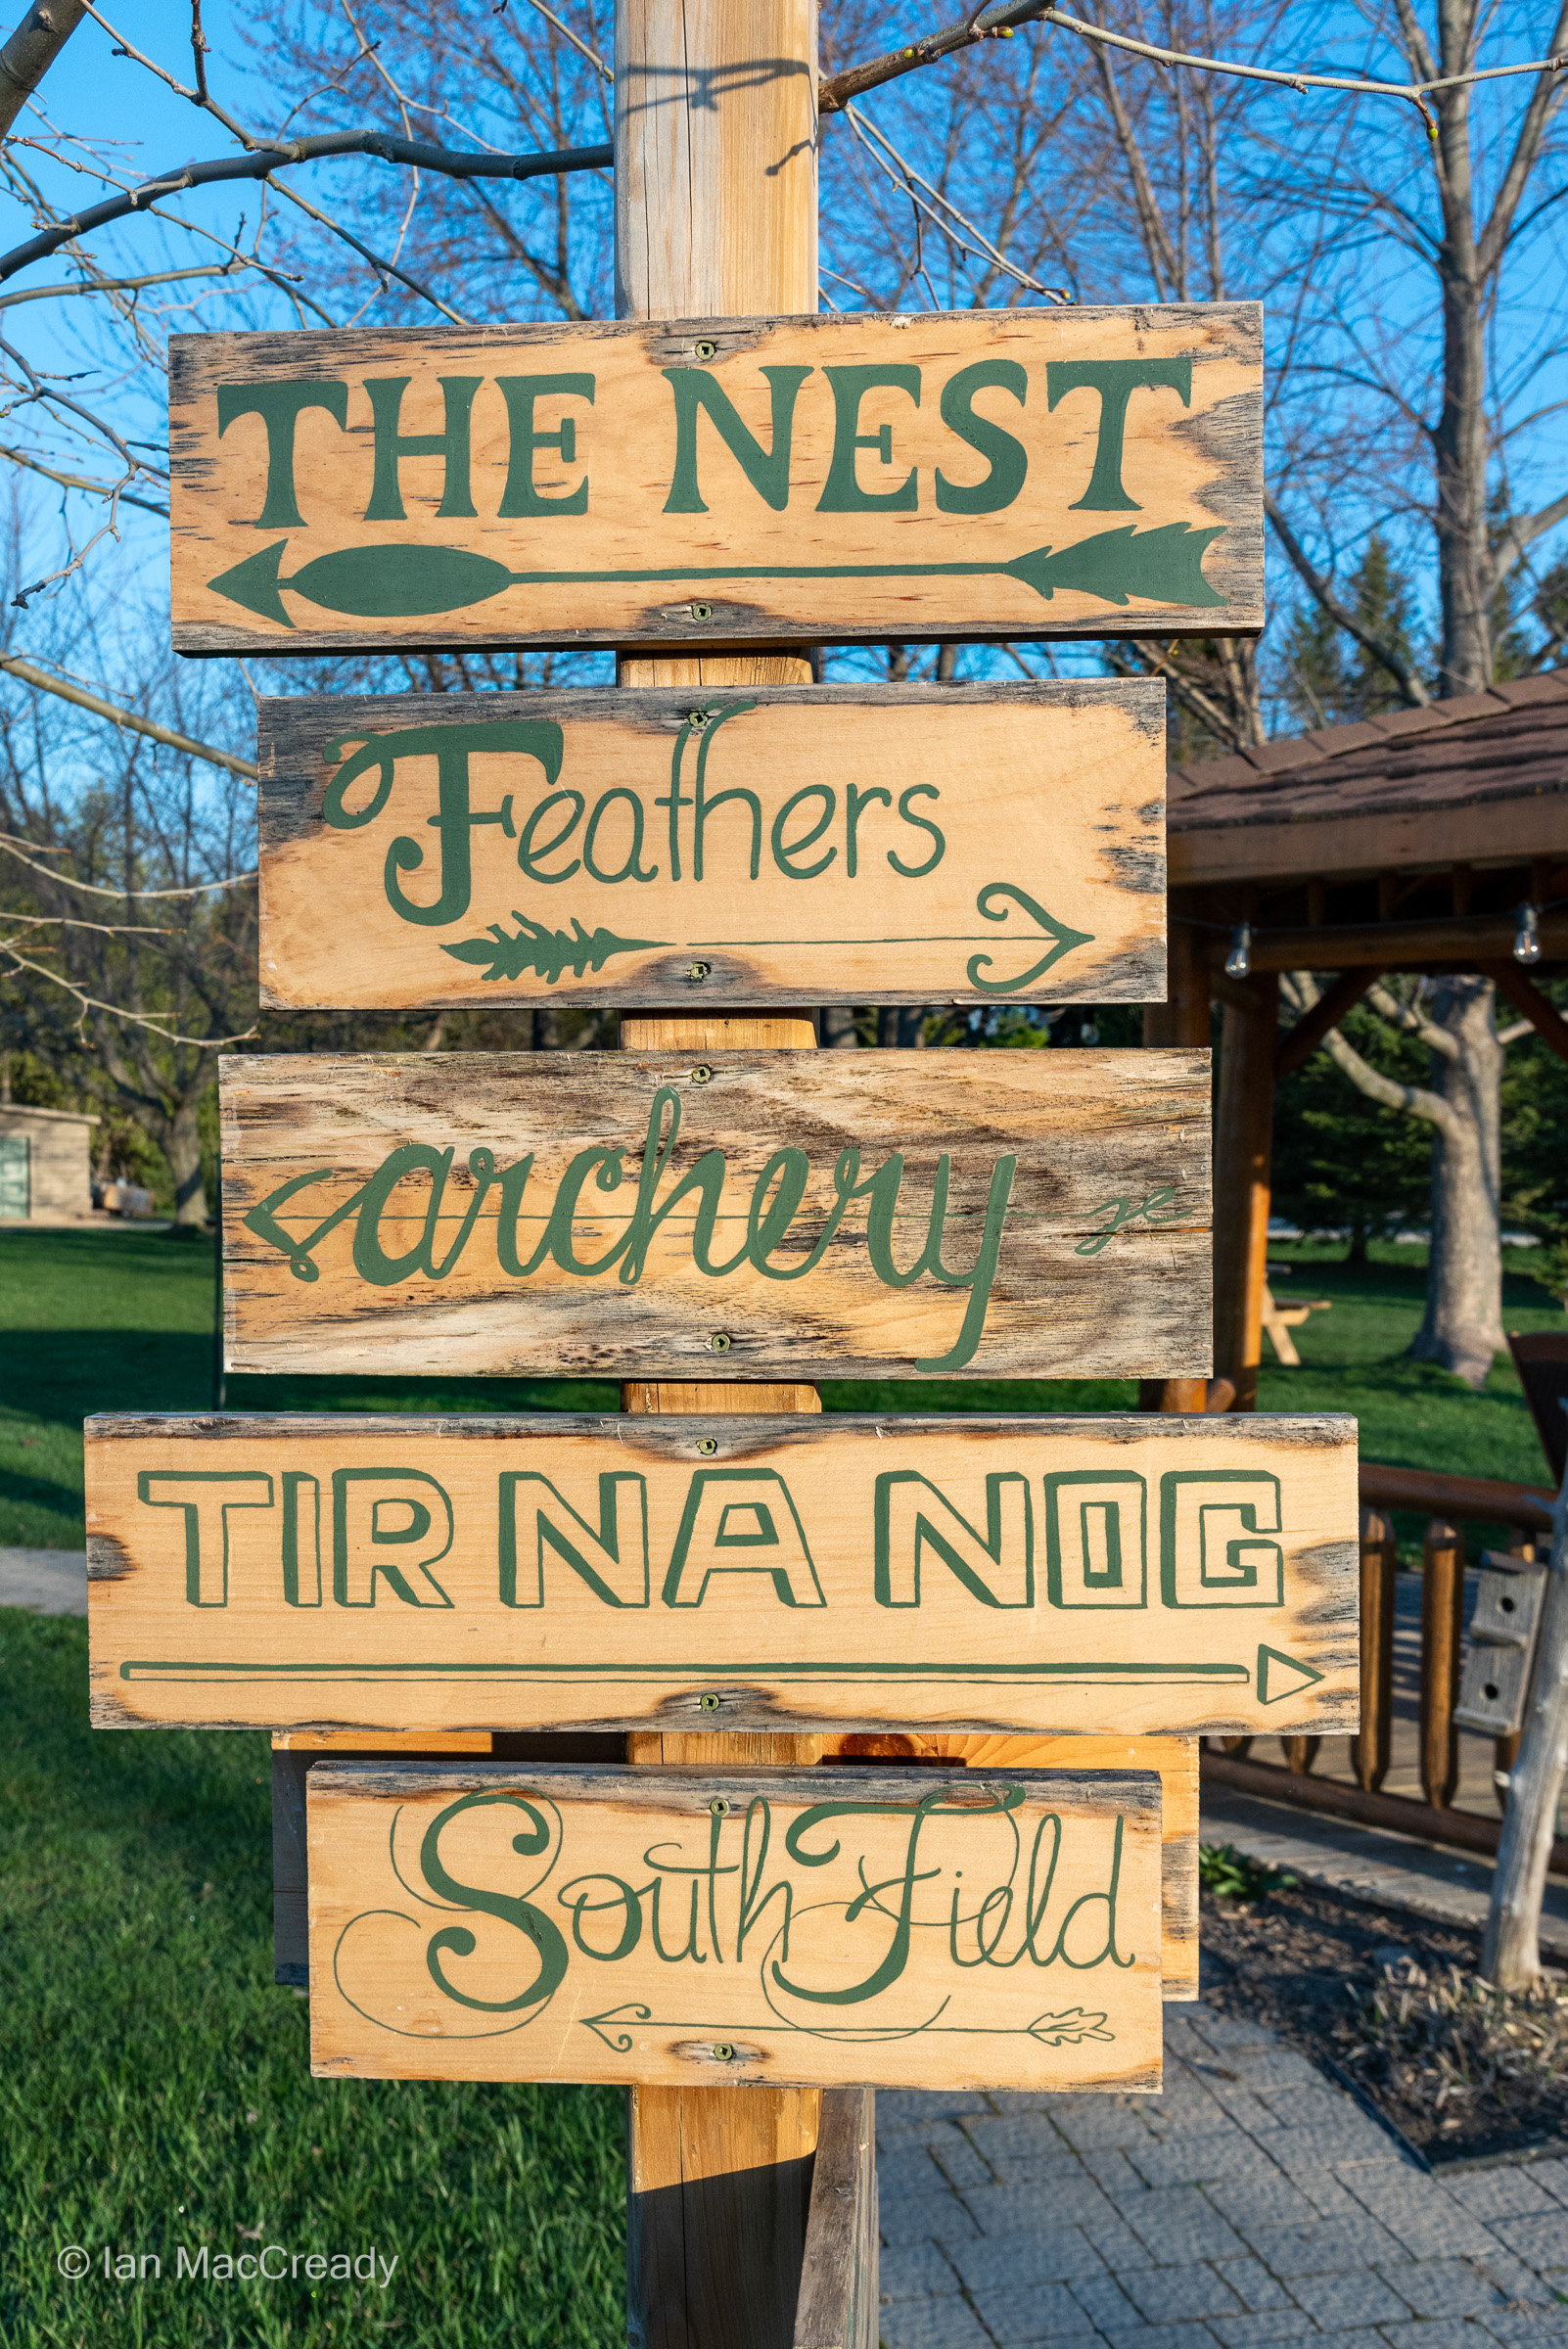 THE NEST
Feathers
archery
TIR NA NOG
South Field
© Ian MacCready